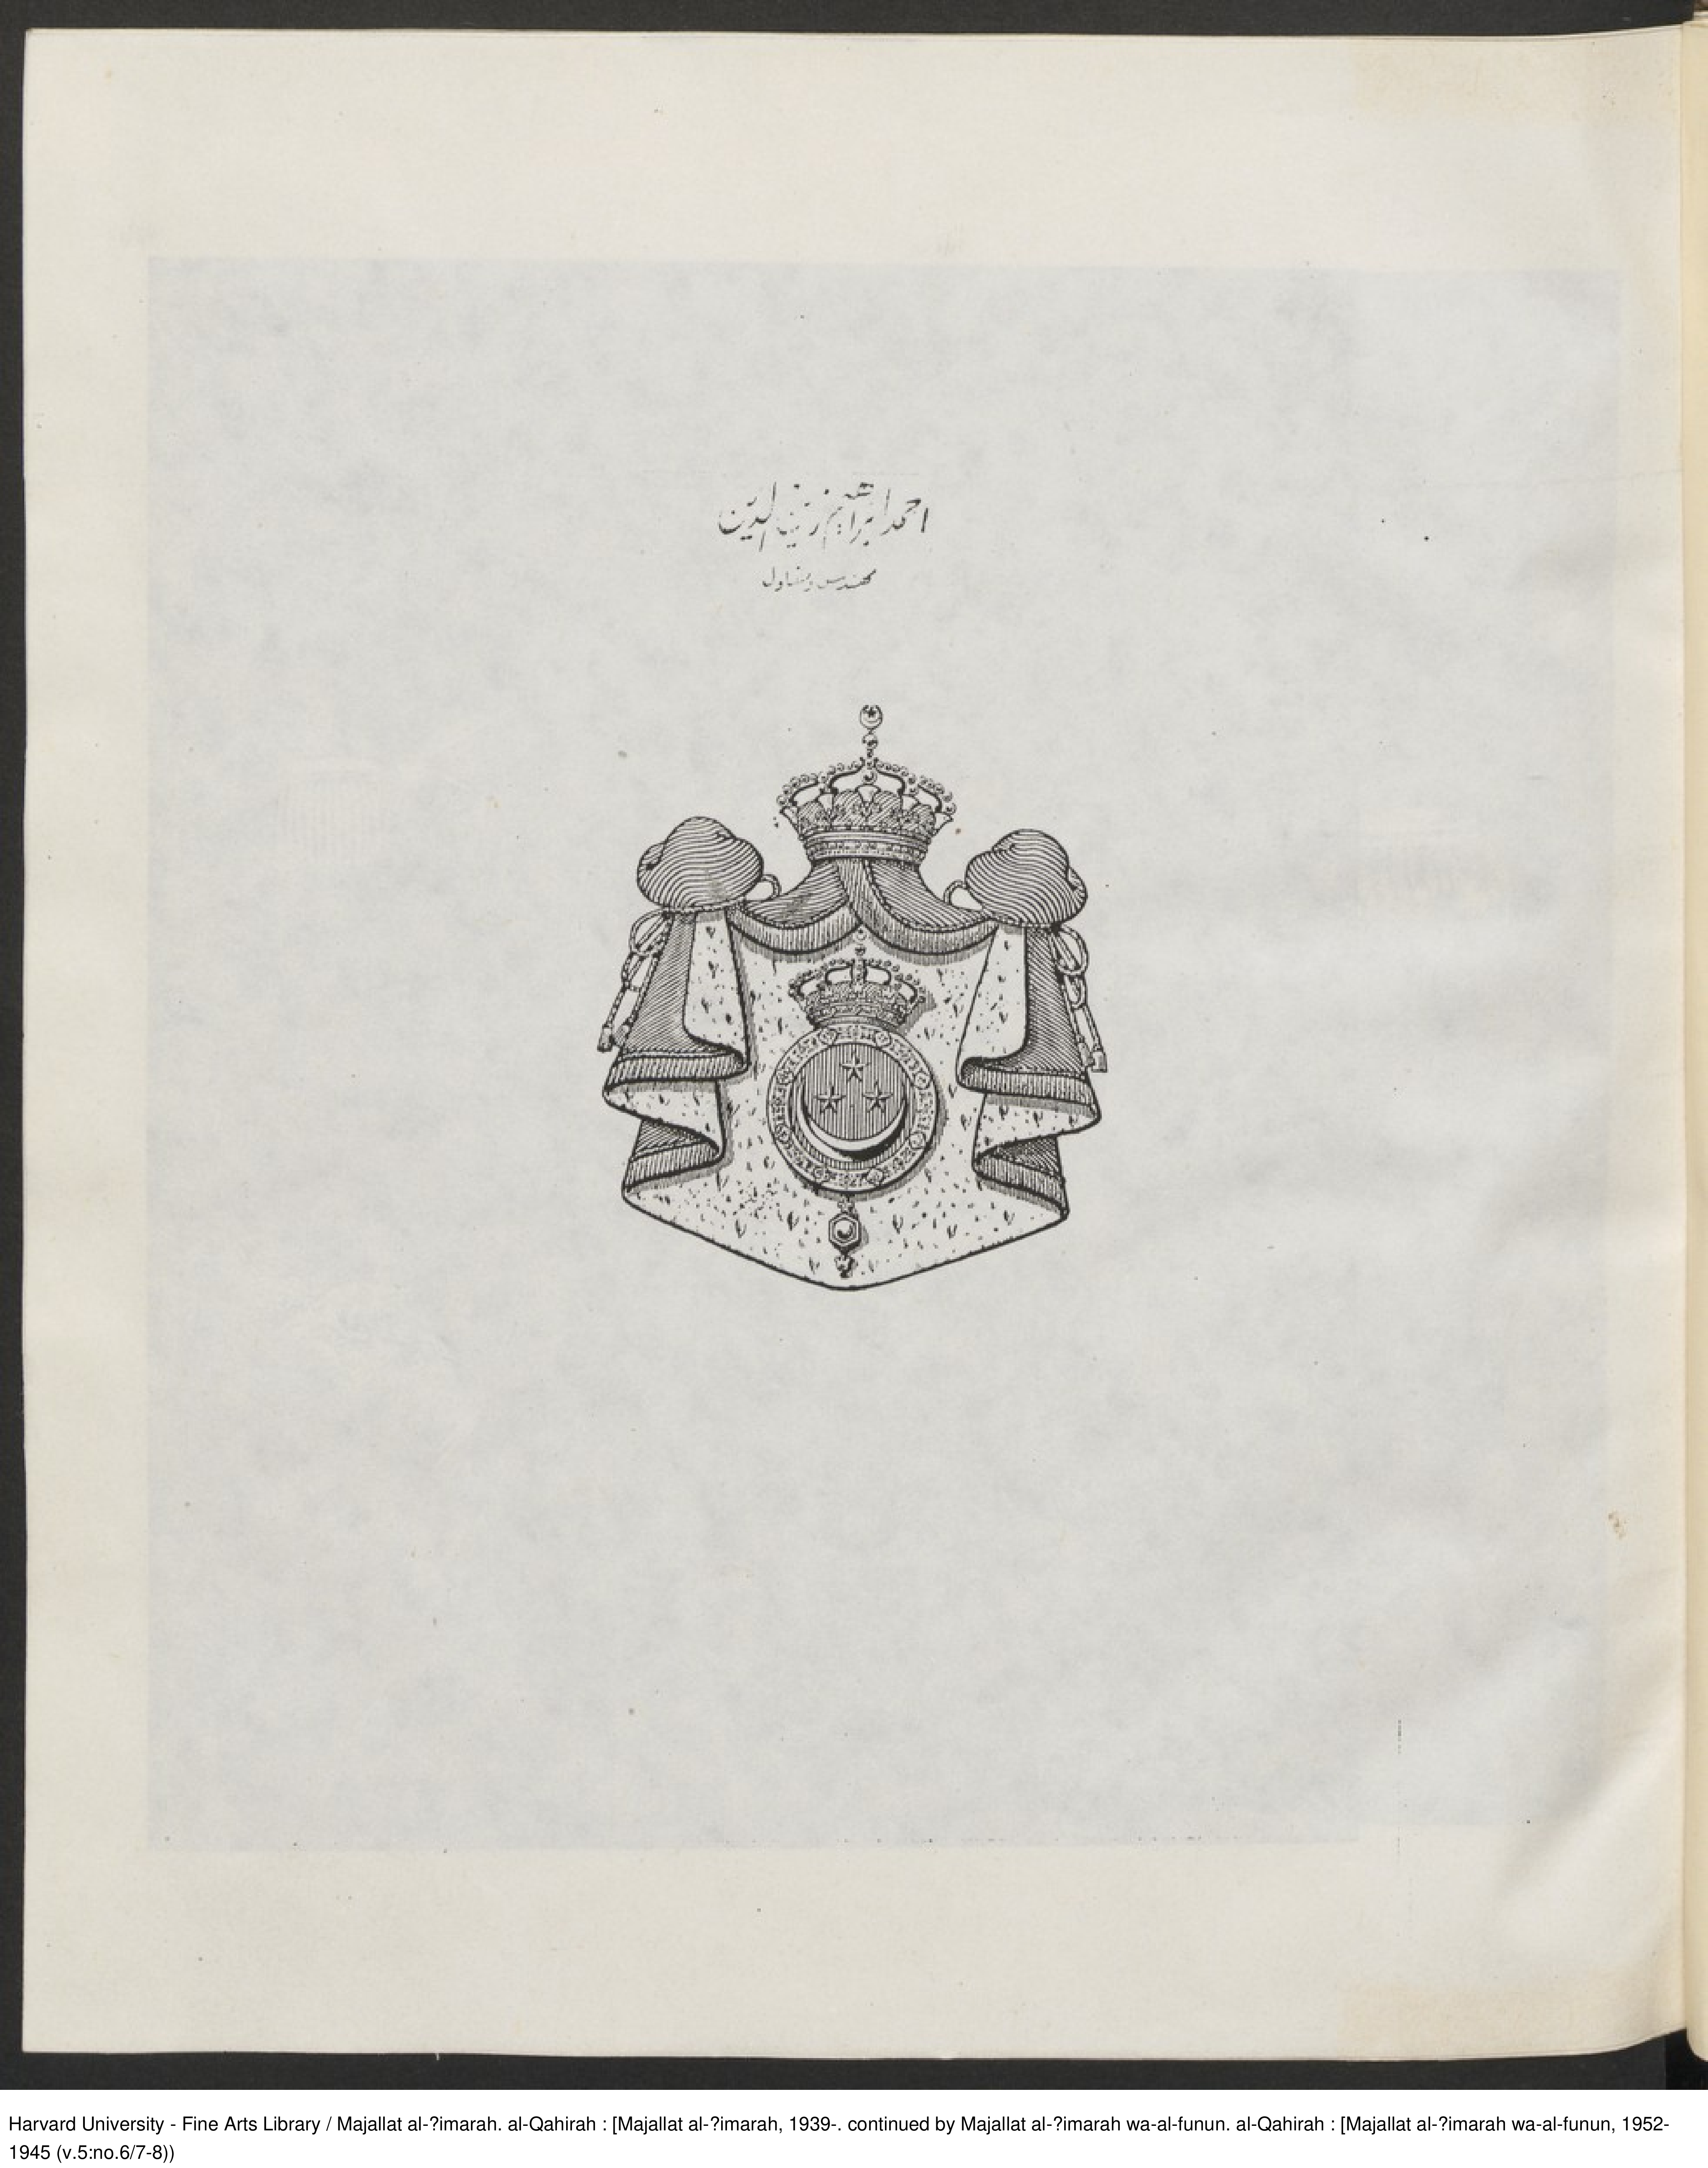 احمد ابراهيم زين الدين
مهندس ومقاول
Harvard University - Fine Arts Library / Majallat al-?imarah. al-Qahirah : [Majallat al-?imarah, 1939-. continued by Majallat al-?imarah wa-al-funun. al-Qahirah : [Majallat al-?imarah wa-al-funun, 1952-
1945 (v.5:no.6/7-8))